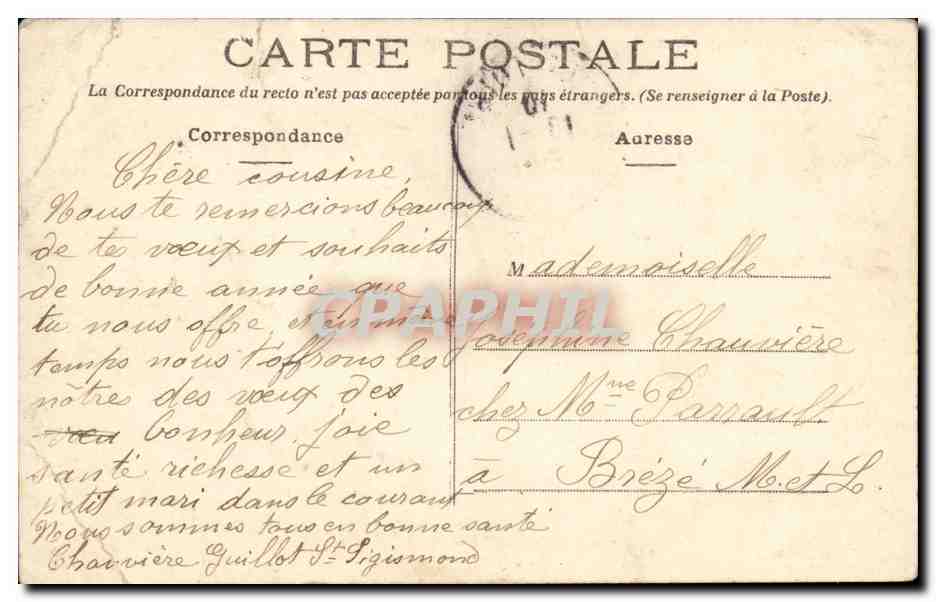 CARTE POSTALE
La Correspondance du recto n'est pas acceptée par tous les pays étrangers. (Se renseigner à la Poste).
Correspondance
Chère cousine,
Nous te remercions beaucoup
de tes vœux et souhaits
de bonne année que
tu nous offre, et en même
temps nous t'offrons les
nôtres des vœux des
vœu bonheur, joie
santé richesse et un
petit mari dans le courant
Nous sommes tous en bonne santé
Chauvière Guillot St Sigismond
Adresse
Mademoiselle
Joséphine Chauvière
chez Mme Parrault
à Brézé M. et L.
CPAPHIL